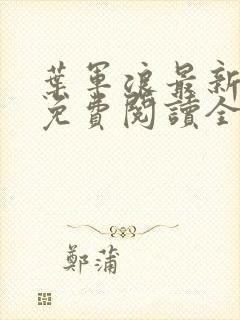 葉軍浪最新
免費閱讀全
鄭蒲